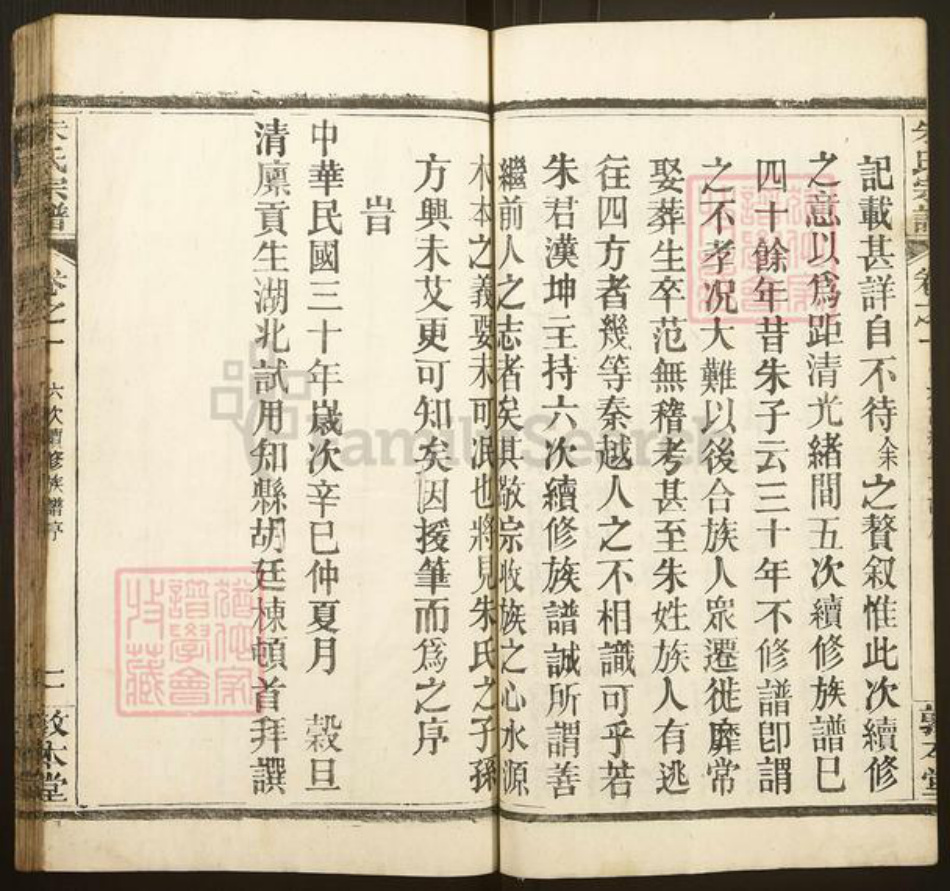 記載甚詳自不待余之贅叙惟此次續修
之意以爲距清光緒間五次續修族譜已
四十餘年昔朱子云三十年不修譜卽謂
之不孝况大難以後合族人衆遷徙靡常
娶葬生卒茫無稽考甚至朱姓族人有逃
往四方者幾等秦越人之不相識可乎若
朱君漢坤主持六次續修族譜誠所謂善
繼前人之志者矣其敬宗收族之心水源
木本之義要未可泯也將見朱氏之子孫
方興未艾更可知矣因援筆而爲之序
旹
中華民國三十年歲次辛巳仲夏月　穀旦
清廩貢生湖北試用知縣胡廷棟頓首拜譔
朱氏宗譜 卷之一 六次續修族譜序 二 敦本堂
FamilySearch